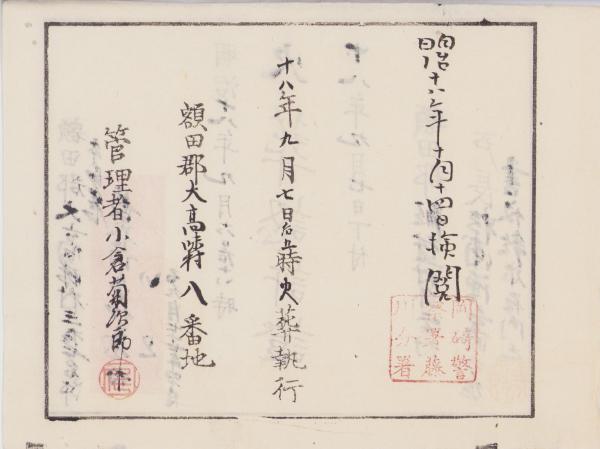 明治十八年十月十四日検閲
岡崎警
察署藤
川分署
十八年九月七日后五時火葬執行
額田郡大高味村八番地
管理者小倉菊次郎